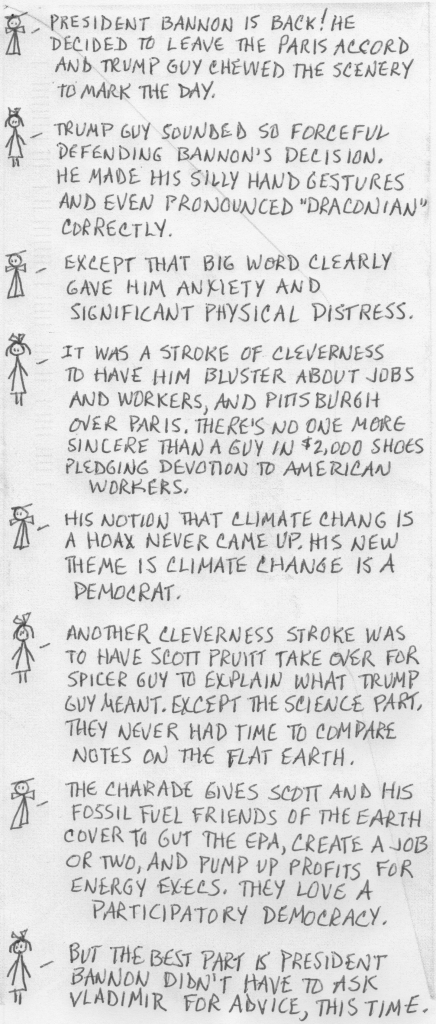 PRESIDENT BANNON IS BACK! HE
DECIDED TO LEAVE THE PARIS ACCORD
AND TRUMP GUY CHEWED THE SCENERY
TO MARK THE DAY.
TRUMP GUY SOUNDED SO FORCEFUL
DEFENDING BANNON'S DECISION.
HE MADE HIS SILLY HAND GESTURES
AND EVEN PRONOUNCED "DRACONIAN"
CORRECTLY.
EXCEPT THAT BIG WORD CLEARLY
GAVE HIM ANXIETY AND
SIGNIFICANT PHYSICAL DISTRESS.
IT WAS A STROKE OF CLEVERNESS
TO HAVE HIM BLUSTER ABOUT JOBS
AND WORKERS, AND PITTSBURGH
OVER PARIS. THERE'S NO ONE MORE
SINCERE THAN A GUY IN $2,000 SHOES
PLEDGING DEVOTION TO AMERICAN
WORKERS.
HIS NOTION THAT CLIMATE CHANG IS
A HOAX NEVER CAME UP. HIS NEW
THEME IS CLIMATE CHANGE IS A
DEMOCRAT.
ANOTHER CLEVERNESS STROKE WAS
TO HAVE SCOTT PRUITT TAKE OVER FOR
SPICER GUY TO EXPLAIN WHAT TRUMP
GUY MEANT. EXCEPT THE SCIENCE PART.
THEY NEVER HAD TIME TO COMPARE
NOTES ON THE FLAT EARTH.
THE CHARADE GIVES SCOTT AND HIS
FOSSIL FUEL FRIENDS OF THE EARTH
COVER TO GUT THE EPA, CREATE A JOB
OR TWO, AND PUMP UP PROFITS FOR
ENERGY EXECS. THEY LOVE A
PARTICIPATORY DEMOCRACY.
BUT THE BEST PART IS PRESIDENT
BANNON DIDN'T HAVE TO ASK
VLADIMIR FOR ADVICE, THIS TIME.